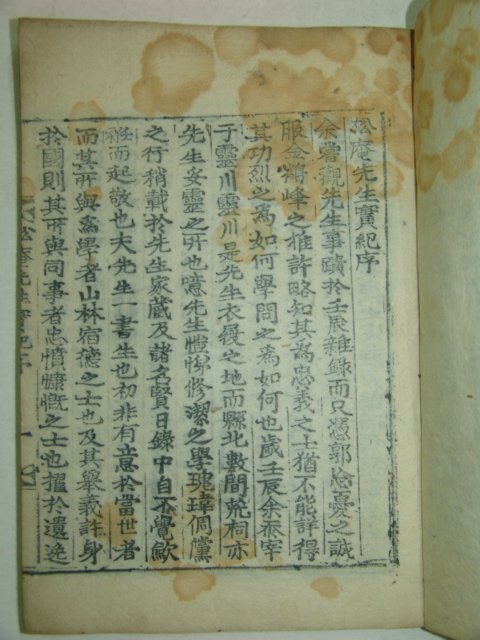 松庵先生實紀序
余嘗觀先生事蹟於壬辰雜錄而又憑郭忘憂之誠
服金鶴峰之推許略知其爲忠義之士猶不能詳得
其功烈之爲如何學問之爲如何也歲壬辰余忝宰
子靈川靈川是先生衣履之地而縣北數間荒祠亦
先生妥靈之所也噫先生愷悌修潔之學瑰瑋倜儻
之行稍載於先生家藏及諸名賢日錄中自不覺歛
衽而起敬也夫先生一書生也初非有意於當世者
而其所與爲學者山林宿德之士也及其擧義許身
於國則其所與同事者忠憤慷慨之士也擢於遺逸
松庵先生實紀序 一